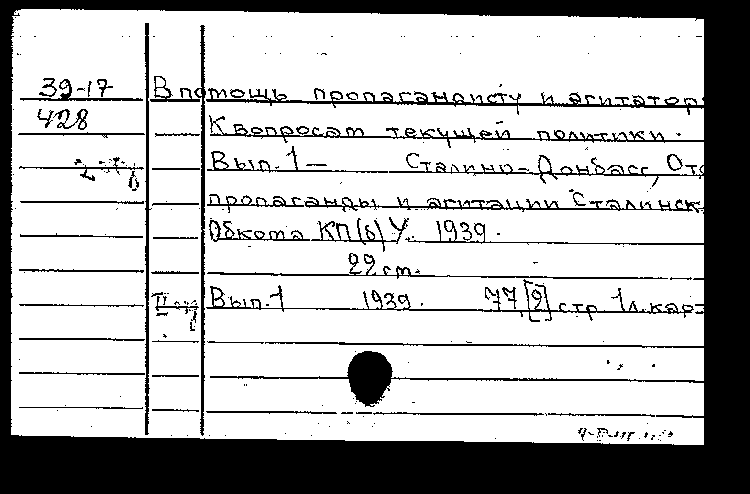 39-17 В помощь пропагандисту и агитатор
428 К вопросам текущей политики.
Вып. 1 — Сталино-Донбасс, Отд
пропаганды и агитации Сталинск
Обкома КП(б)У. 1939.
22 cm.
Вып. 1 1939. 77,[2] стр 1 л. карт